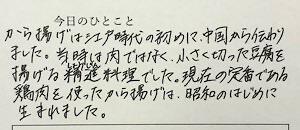 今日のひとこと
から揚げは江戸時代の初めに、中国から伝わり
ました。当時は肉ではなく、小さく切った豆腐を
揚げる精進料理でした。現在の定番である
鶏肉を使ったから揚げは、昭和のはじめに
生まれました。